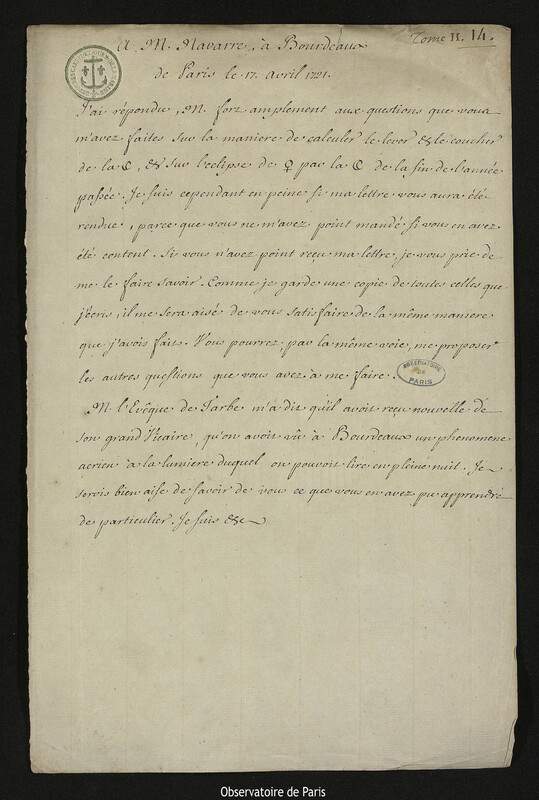 A M. Navarre, à Bourdeaux
Tome II. 14.
de Paris le 17. avril 1721.
J'ai répondu, M. fort amplement aux questions que vous
m'avez faites sur la maniere de calculer le lever & le coucher
de la ☾, & sur l'eclipse de ♀ par la ☾ de la fin de l'année
passée. Je suis cependant en peine si ma lettre vous aura été
rendue, parce que vous ne m'avez point mandé si vous en avez
été content. Si vous n'avez point reçu ma lettre, je vous prie de
me le faire savoir. Comme je garde une copie de toutes celles que
j'écris, il me sera aisé de vous satisfaire de la même maniere
que j'avois fait. Vous pourrez, par la même voie, me proposer
les autres questions que vous avez à me faire.
OBSERVATOIRE
DE
PARIS
M. l'Evêque de Tarbe m'a dit qu'il avoit reçu nouvelle de
son grand Vicaire, qu'on avoit vû à Bourdeaux un phenomene
aerien à la lumiere duquel on pouvoit lire en pleine nuit. Je
serois bien aise de savoir de vous ce que vous en avez pu apprendre
de particulier. Je suis &c
Observatoire de Paris